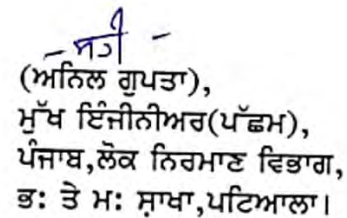 - ਸਹੀ -
(ਅਨਿਲ ਗੁਪਤਾ),
ਮੁੱਖ ਇੰਜੀਨੀਅਰ(ਪੱਛਮ),
ਪੰਜਾਬ,ਲੋਕ ਨਿਰਮਾਣ ਵਿਭਾਗ,
ਭ: ਤੇ ਮ: ਸ਼ਾਖਾ,ਪਟਿਆਲਾ।